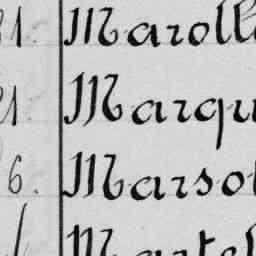 31. Maroll
21. Marqu
6. Marsol
Martel